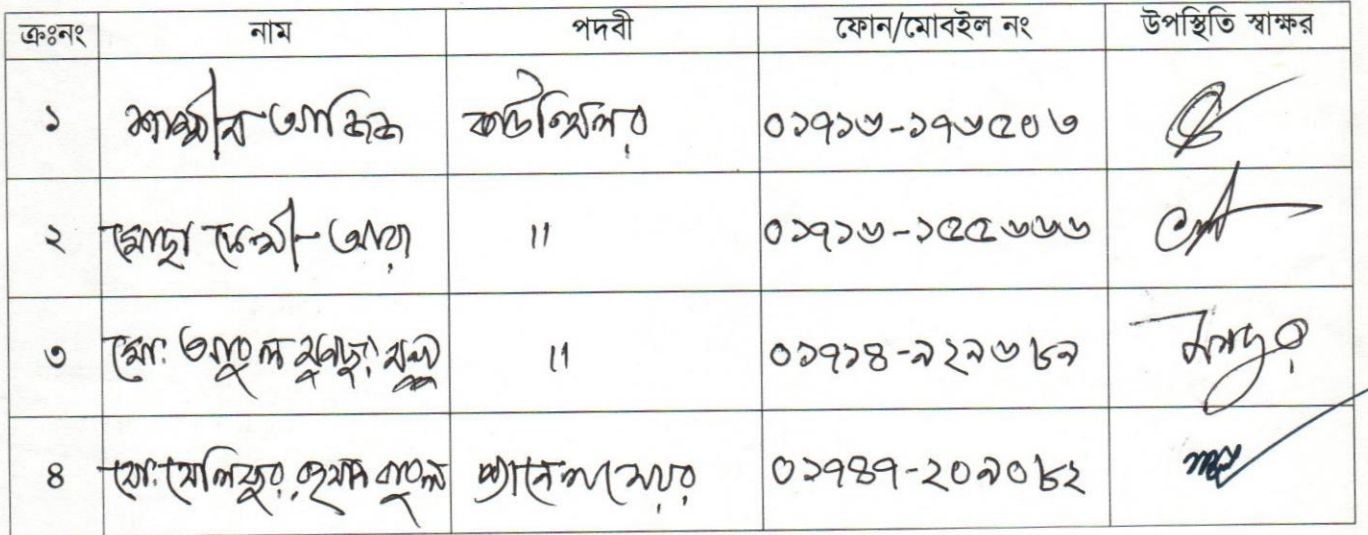 ক্রঃনং নাম পদবী ফোন/মোবইল নং উপস্থিতি স্বাক্ষর
১ শামীম আজিজ কাউন্সিলর ০১৭১৬-১৭৬৫০৬
২ মোছা ফেন্সী আরা " ০১৭১৬-১৫৫৬৬৬
৩ মো: আবুল " ০১৭১৪-৯২৯৬৮৯
৪ মো: রহমান বাবুল প্যানেল মেয়র ০১৭৪৭-২০৯০৮২